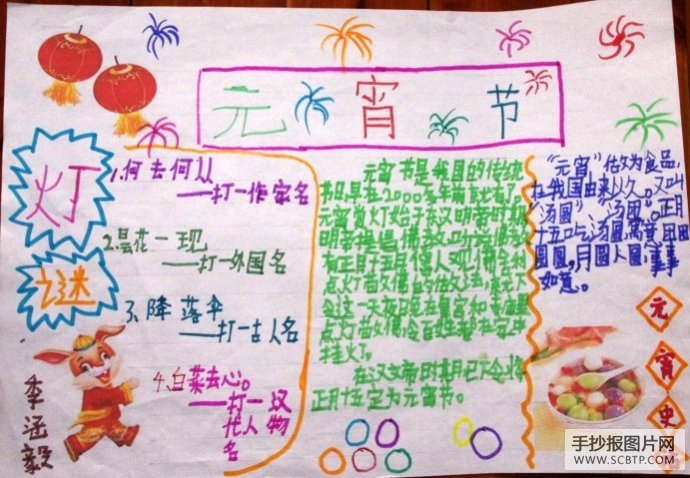 元宵节
灯
谜
1.何去何从
——打一作家名
2.昙花一现
——打一外国名
3、降落伞
——打一古人名
4、白菜去心。
——打一汉
代人物
名
李涵毅
元宵节是我国的传统
节日,早在2000多年前就有了。
元宵赏灯始于东汉明帝时期
明帝提倡佛教,
有正月十五日僧人观佛舍利
点灯敬佛的做法,就下
令这一天夜晚在皇宫和寺庙里
点灯敬佛,令百姓都在家中
挂灯。
在汉文帝时期,已下令将
正月十五定为元宵节。
“元宵”作为食品,
在我国由来以久。又叫
“汤圆”、汤圆。正月
十五吃汤圆,寓意团团
圆圆,月圆人圆,事事
如意。
元
宵
史
手抄报图片网
WWW.SCBTP.COM